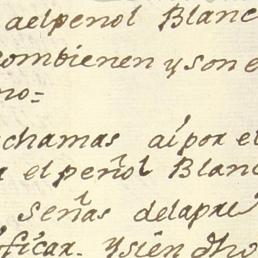 aelpeñol Blanc
combienen y son e
no=
chamas aípor el
r el peñol Blanc
Señas delapre
ficar. Ysien dho